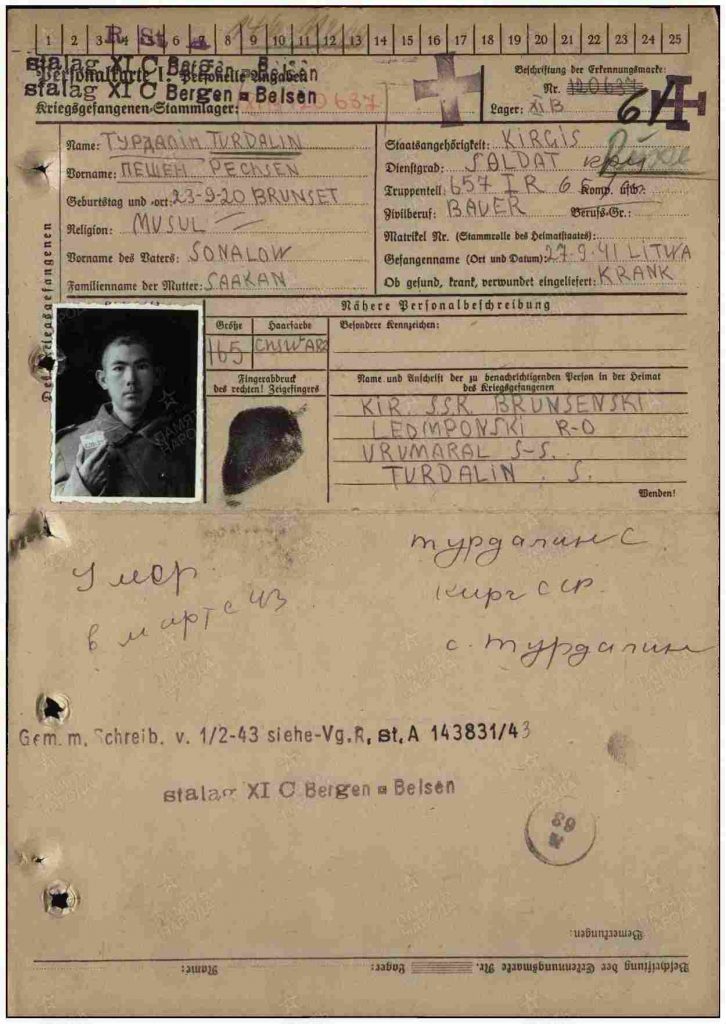 1 2 3 4 5 6 7 8 9 10 11 12 13 14 15 16 17 18 19 20 21 22 23 24 25
stalag XI C Bergen = Belsen
Personalkarte I: Personelle Angaben
stalag XI C Bergen = Belsen
Kriegsgefangenen-Stammlager:
Beschriftung der Erkennungsmarke:
Nr. 120637
Lager: XI B
Name: ТУРДАЛІН TURDALIN
Vorname: ПЕШЕН PECHSEN
Geburtstag und -ort: 23-9-20 BRUNSET
Religion: MUSUL
Vorname des Vaters: SONALOW
Familienname der Mutter: SAAKAN
Staatsangehörigkeit: KIRGIS
Dienstgrad: SOLDAT
Truppenteil: 657 I R 6 Komp. usw.:
Zivilberuf: BAUER Berufs-Gr.:
Matrikel Nr. (Stammrolle des Heimatstaates):
Gefangenname (Ort und Datum): 27-9-41 LITWA
Ob gesund, krank, verwundet eingeliefert: KRANK
Des Kriegsgefangenen
Nähere Personalbeschreibung
Größe
Haarfarbe
Besondere Kennzeichen:
165
Fingerabdruck
des rechten! Zeigefingers
Name und Anschrift der zu benachrichtigenden Person in der Heimat
des Kriegsgefangenen
KIR. S.S.R. BRUNSENSKI
LEOMPONSKI R-O
URUMARAL S-S.
TURDALIN . S.
Wenden!
Умер
в марте 43
турдалин С
кирг ССР
с. Турдалин
Gem. m. Schreib. v. 1/2-43 siehe-Vg.R, st, A 143831/43
stalag XI C Bergen = Belsen
63
Bemerkungen:
Beschriftung der Erkennungsmarke Nr. Lager: Name: